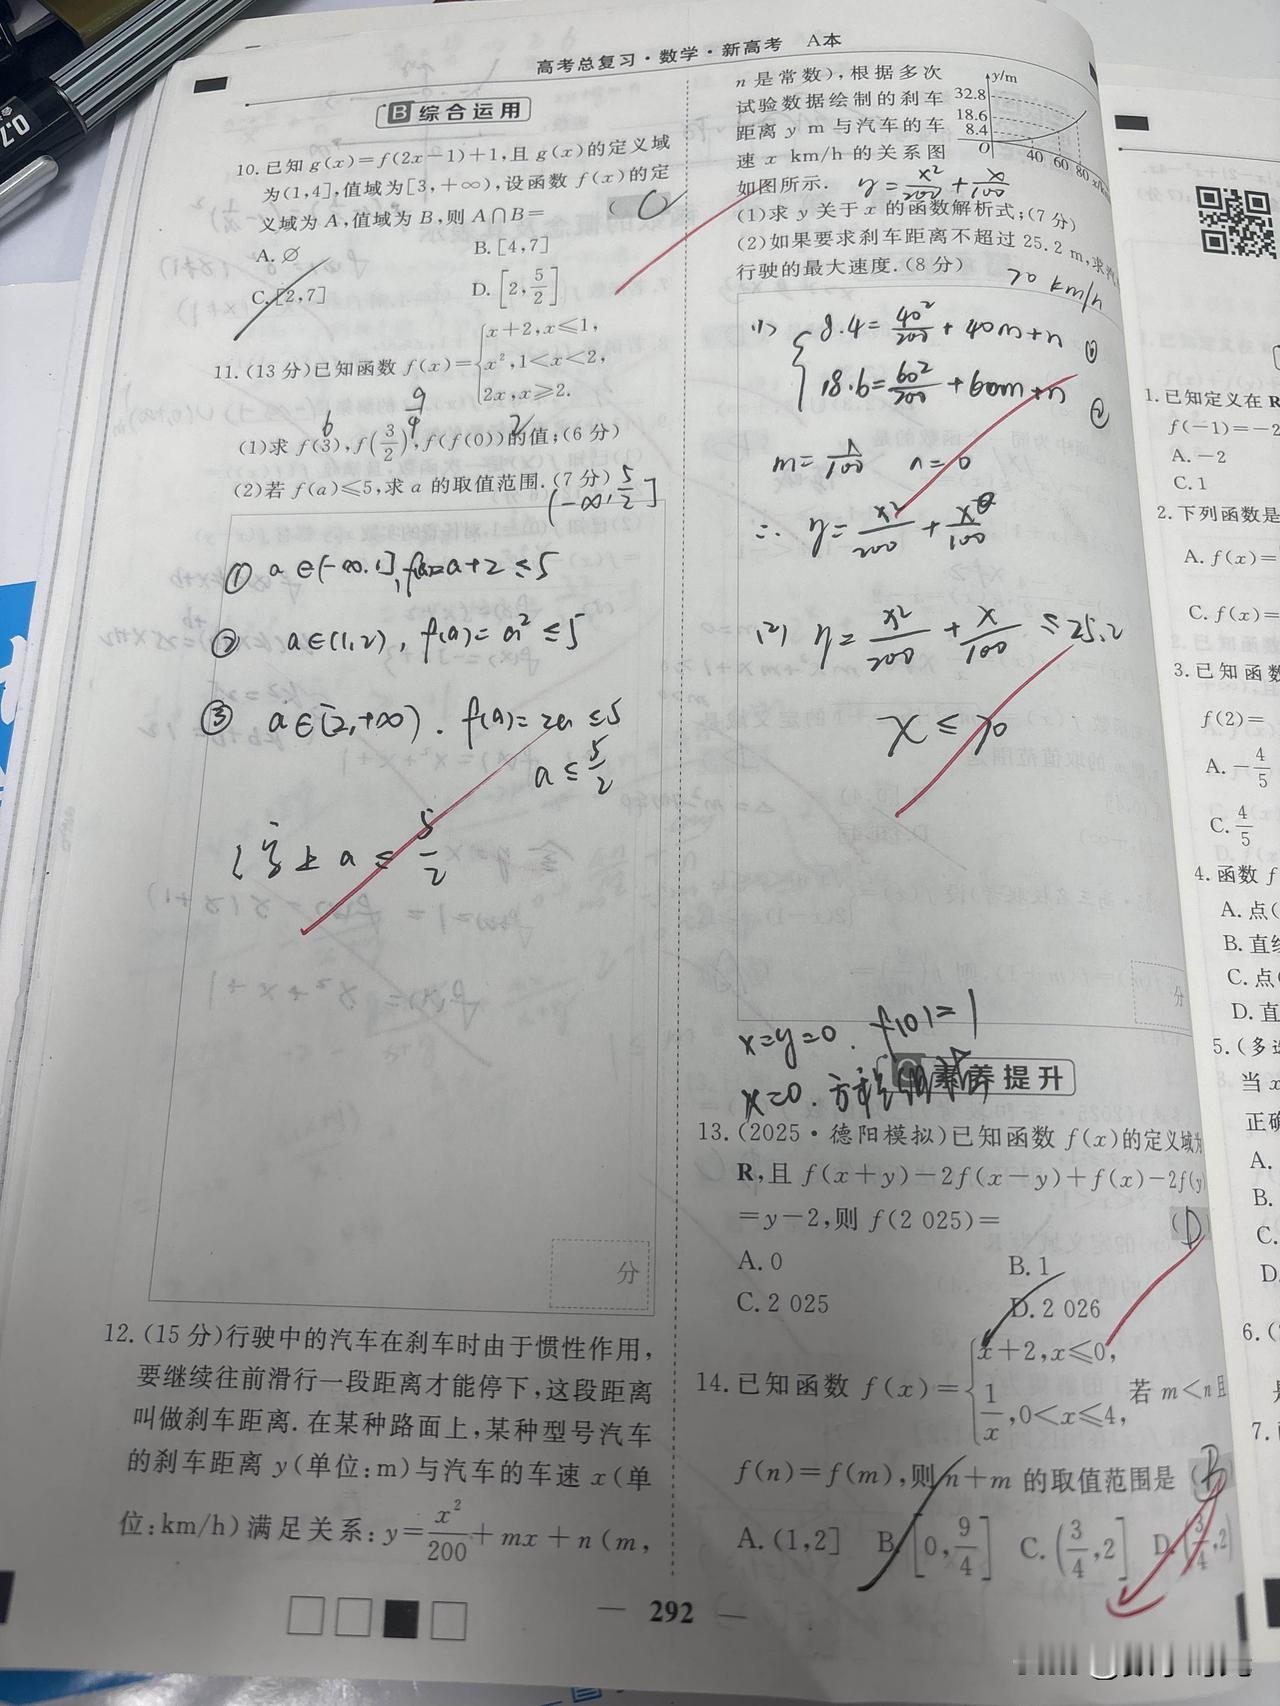 高考总复习·数学·新高考 A本
B 综合运用
10.已知g(x)=f(2x-1)+1,且g(x)的定义域
为(1,4],值域为[3,+∞),设函数f(x)的定
义域为A,值域为B,则A∩B=
( C
A.∅ B.[4,7]
C.[2,7] D.[2,5/2]
11.(13分)已知函数f(x)={x+2,x≤1,
x²,1<x<2,
2x,x≥2.
6 9/4 2
(1)求f(3),f(3/2),f(f(0))的值;(6分)
(2)若f(a)≤5,求a的取值范围.(7分)
(-∞,5/2]
① a∈(-∞,1],f(a)=a+2≤5
② a∈(1,2),f(a)=a²≤5
③ a∈[2,+∞).f(a)=2a≤5
a≤5/2
综上a≤5/2
分
12.(15分)行驶中的汽车在刹车时由于惯性作用,
要继续往前滑行一段距离才能停下,这段距离
叫做刹车距离.在某种路面上,某种型号汽车
的刹车距离y(单位:m)与汽车的车速x(单
位:km/h)满足关系:y=x²/200+mx+n(m,
n是常数),根据多次
试验数据绘制的刹车
距离y m与汽车的车
速x km/h的关系图
如图所示.
y/m
32.8
18.6
8.4
O 40 60 80
y=x²/200+x/100
(1)求y关于x的函数解析式;(7分)
(2)如果要求刹车距离不超过25.2 m,求
行驶的最大速度.(8分)
70 km/h
(1) {8.4=40²/200+40m+n ①
18.6=60²/200+60m+n ②
m=1/100 n=0
∴ y=x²/200+x/100
(2) y=x²/200+x/100≤25.2
x≤70
分
x=y=0.f(0)=1
x=0.方程组
C 素养提升
13.(2025·德阳模拟)已知函数f(x)的定义域为
R,且f(x+y)-2f(x-y)+f(x)-2f(y)
=y-2,则f(2 025)=
(D
A.0 B.1
C.2 025 D.2 026
14.已知函数f(x)={x+2,x≤0,
1/x,0<x≤4,
若m<n且
f(n)=f(m),则n+m的取值范围是 (B
A.(1,2] B.[0,9/4] C.(3/4,2] D.(3/4,2)
292
1.已知定义在R
f(-1)=-2
A.-2
C.1
2.下列函数是
A.f(x)=
C.f(x)=
3.已知函数
f(2)=
A.-4/5
C.4/5
4.函数f
A.点(
B.直线
C.点(
D.直
5.(多选
当x
正确
A.
B.
C.
D.
6.(
7.